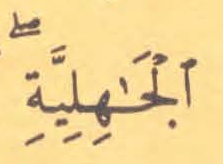 ٱلْجَٰهِلِيَّةِ ۖ